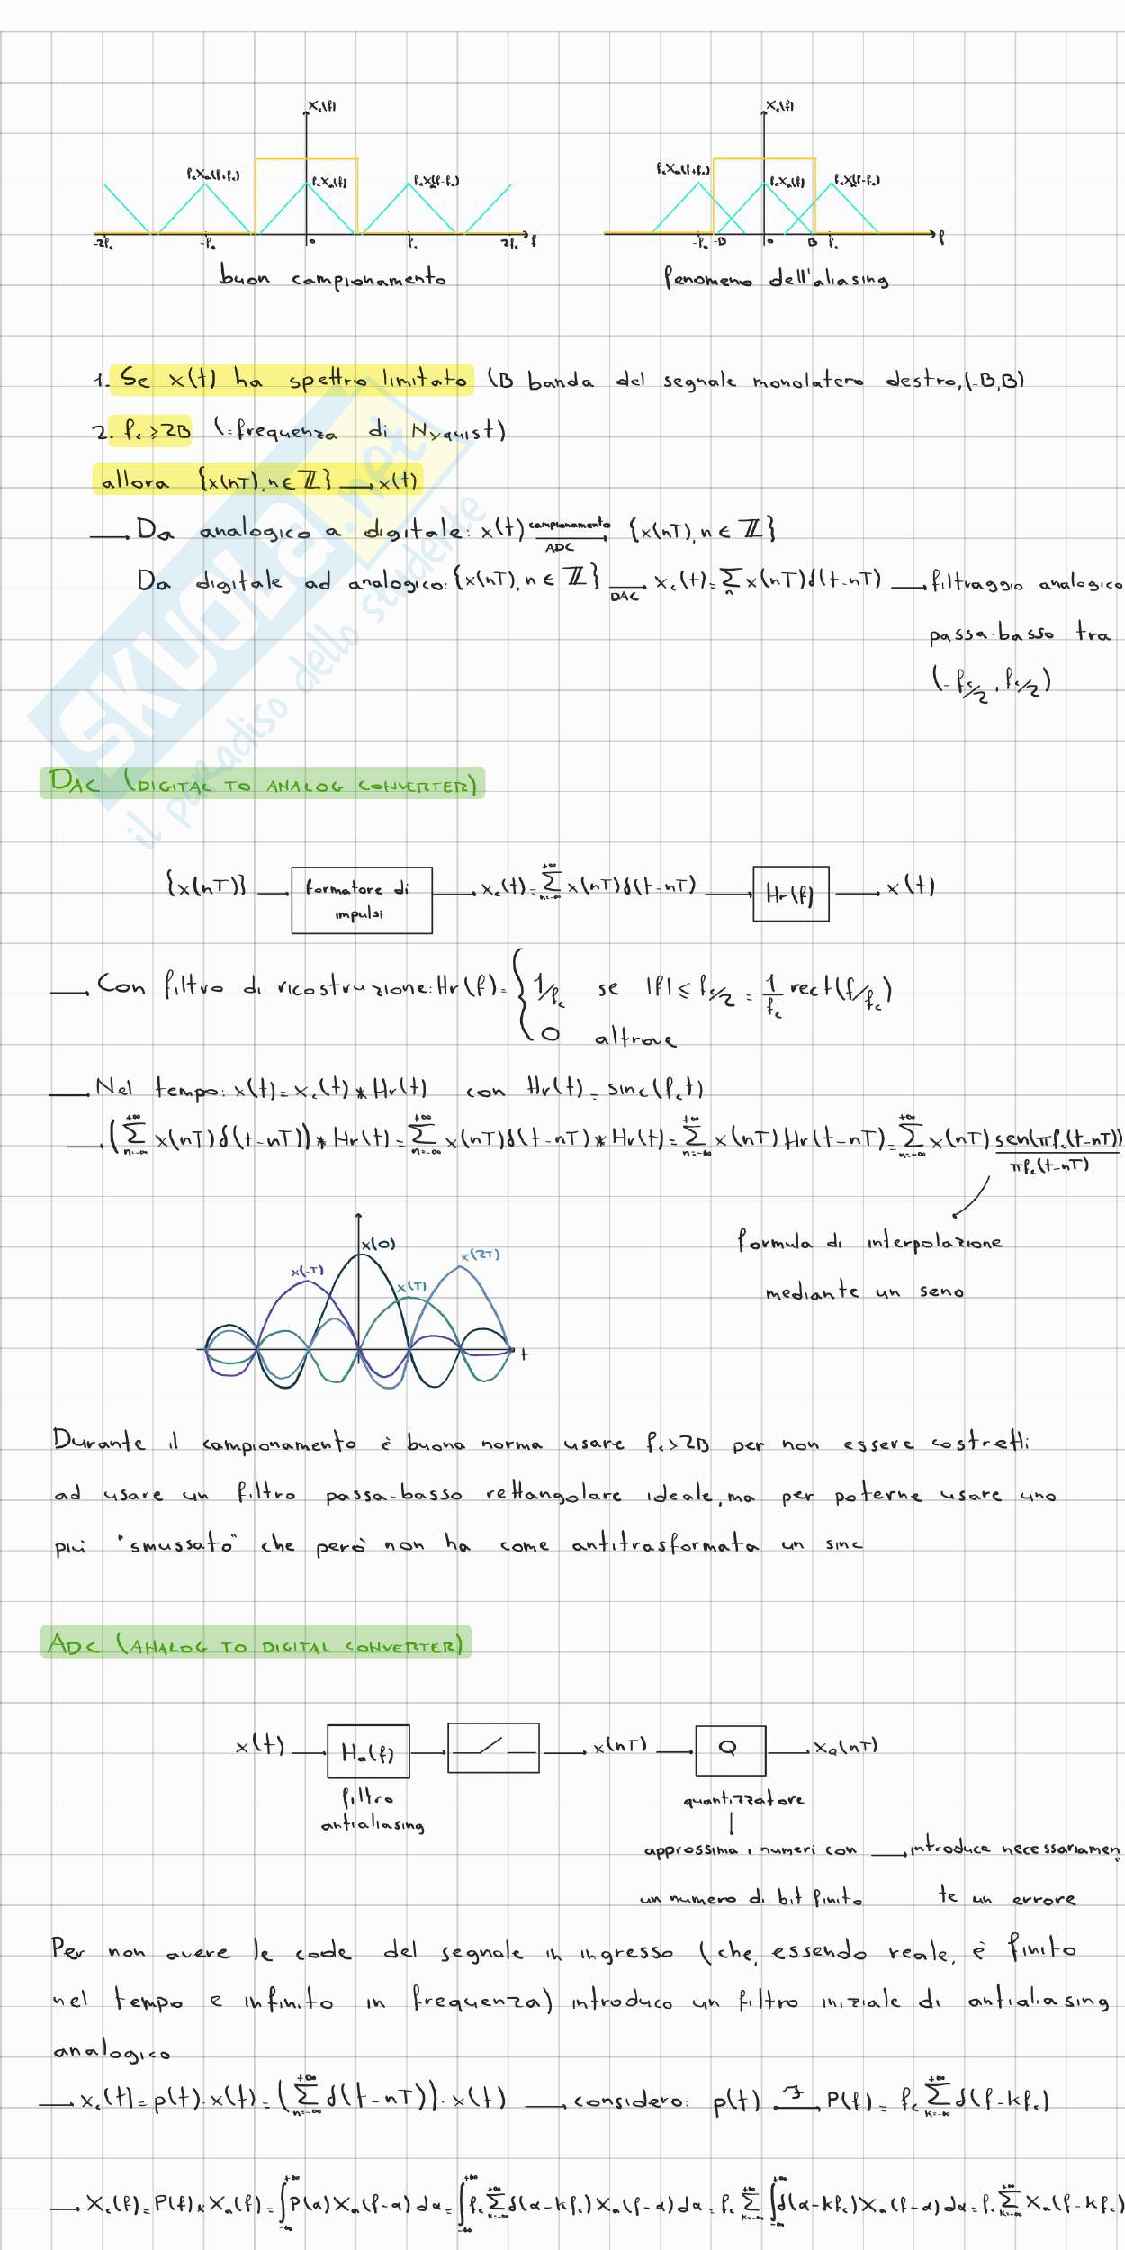 Xc(f) Xc(f)
fcXa(f+fc) fcXa(f) fcXa(f-fc) fcXa(f+fc) fcXa(f) fcXa(f-fc)
-2fc -fc 0 fc 2fc f -fc -B 0 B fc f
buon campionamento fenomeno dell'aliasing
1. Se x(t) ha spettro limitato (B banda del segnale monolatero destro, (-B,B)
2. fc ≥ 2B (: frequenza di Nyquist)
allora {x(nT), n ∈ ℤ} → x(t)
→ Da analogico a digitale: x(t) campionamento→ADC {x(nT), n ∈ ℤ}
Da digitale ad analogico: {x(nT), n ∈ ℤ} →DAC xc(t) = Σn x(nT)δ(t-nT) → filtraggio analogico
passa-basso tra
(-fc/2, fc/2)
SKUOLA.net
il paradiso dello studente
DAC (DIGITAL TO ANALOG CONVERTER)
{x(nT)} → formatore di impulsi → xc(t) = Σ(n=-∞, +∞) x(nT)δ(t-nT) → Hr(f) → x(t)
→ Con filtro di ricostruzione: Hr(f) = { 1/fc se |f| ≤ fc/2 = 1/fc rect(f/fc)
0 altrove
→ Nel tempo: x(t) = xc(t) * Hr(t) con Hr(t) = sinc(fct)
→ (Σ(n=-∞, +∞) x(nT)δ(t-nT)) * Hr(t) = Σ(n=-∞, +∞) x(nT)δ(t-nT) * Hr(t) = Σ(n=-∞, +∞) x(nT)Hr(t-nT) = Σ(n=-∞, +∞) x(nT) sen(πfc(t-nT))/πfc(t-nT)
formula di interpolazione
mediante un seno
x(-T) x(0) x(T) x(2T)
t
Durante il campionamento è buona norma usare fc > 2B per non essere costretti
ad usare un filtro passa-basso rettangolare ideale, ma per poterne usare uno
più "smussato" che però non ha come antitrasformata un sinc
ADC (ANALOG TO DIGITAL CONVERTER)
x(t) → Ha(f) → x(nT) → Q → xq(nT)
filtro quantizzatore
antialiasing
approssima i numeri con → introduce necessariamen
un numero di bit finito te un errore
Per non avere le code del segnale in ingresso (che, essendo reale, è finito
nel tempo e infinito in frequenza) introduco un filtro iniziale di antialiasing
analogico
→ xc(t) = p(t)·x(t) = (Σ(n=-∞, +∞) δ(t-nT))·x(t) → considero: p(t) ℱ→ P(f) = fc Σ(k=-∞, +∞) δ(f-kfc)
→ Xc(f) = P(f) * Xa(f) = ∫(-∞, +∞) P(α)Xa(f-α)dα = ∫(-∞, +∞) fc Σ(k=-∞, +∞) δ(α-kfc)Xa(f-α)dα = fc Σ(k=-∞, +∞) ∫(-∞, +∞) δ(α-kfc)Xa(f-α)dα = fc Σ(k=-∞, +∞) Xa(f-kfc)